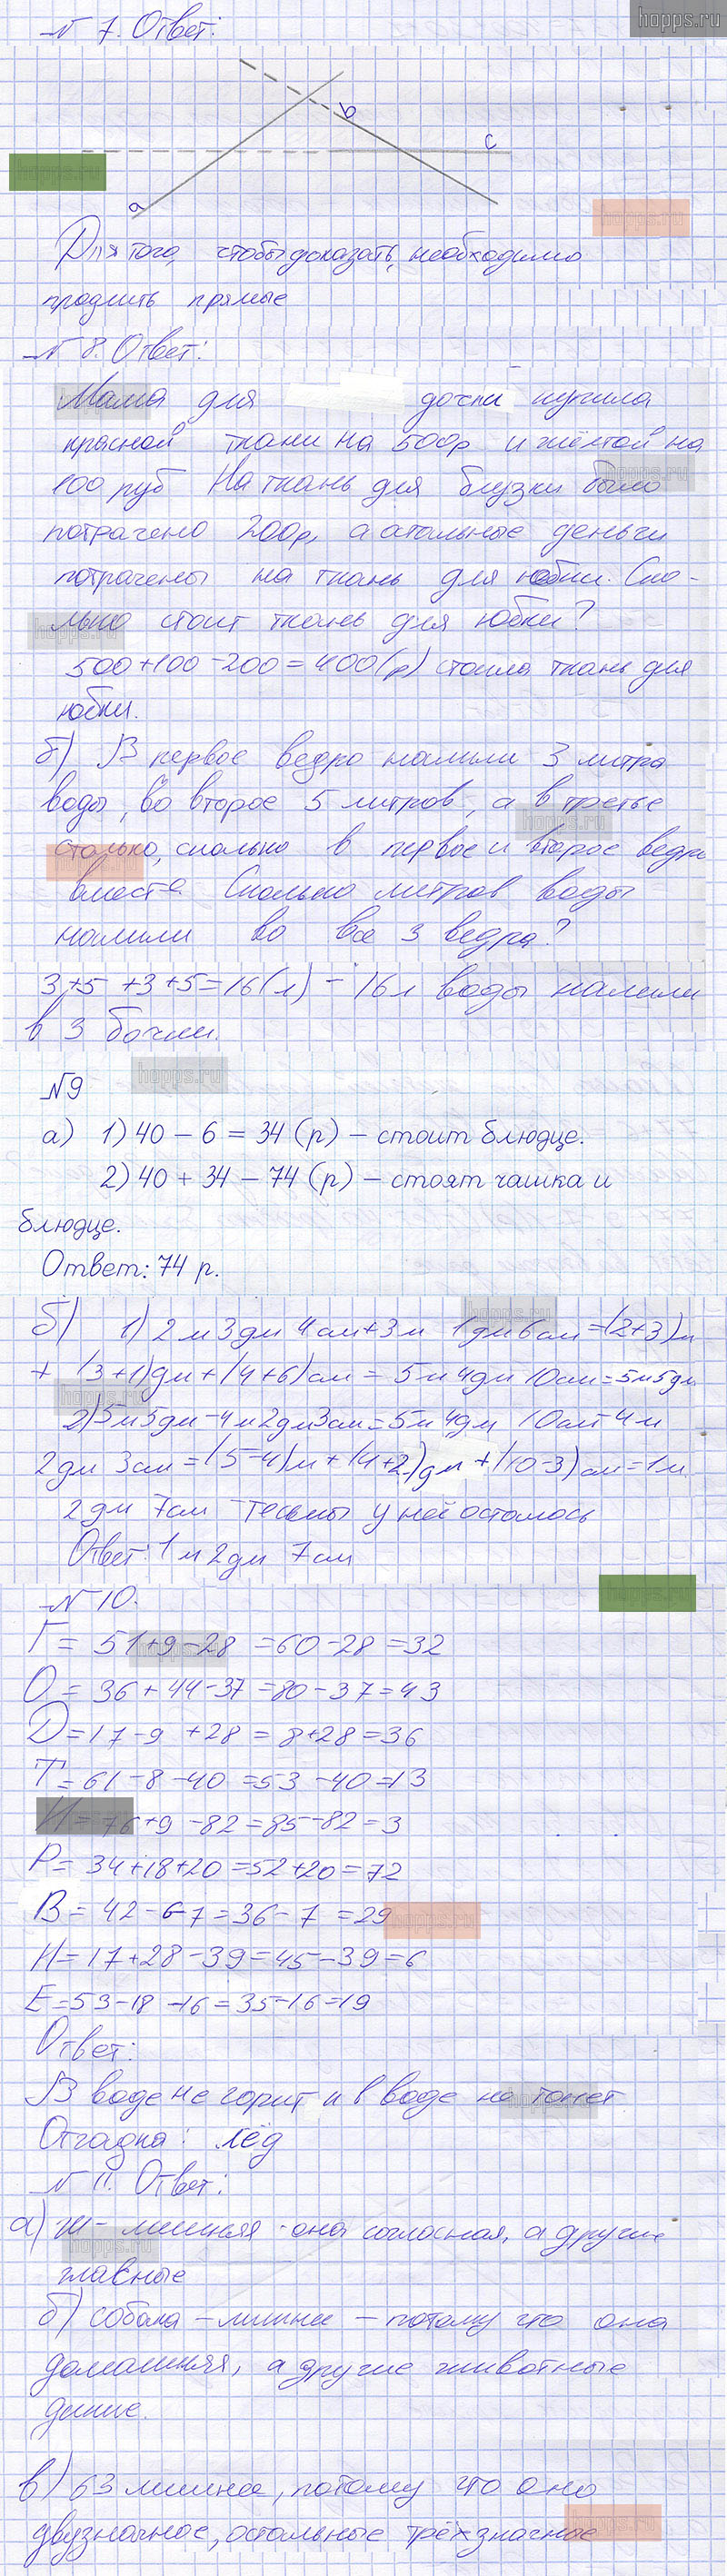 hopps.ru
№ 7. Ответ:
a
b
c
Для того, чтобы доказать, необходимо
продлить прямые
№ 8. Ответ:
Мама для дочки купила
красной ткани на 500р и жёлтой на
100 руб На ткань для блузки было
потрачено 200р, а отальные деньги
потрачены на ткань для юбки. Ско-
лько стоит ткань для юбки?
500+100-200=400(р) стоила ткань для
юбки.
б) В первое ведро налили 3 литра
воды, во второе 5 литров, а в третье
столько, сколько в первое и второе ведра
вместе. Сколько литров воды
налили во все 3 ведра?
3+5+3+5=16(л) - 16л воды налили
в 3 бочки.
№9
а) 1) 40 - 6 = 34 (р) – стоит блюдце.
2) 40 + 34 – 74 (р) – стоят чашка и
блюдце.
Ответ: 74 р.
б) 1) 2м 3дм 4см+3м 1дм 6см=(2+3)м
+ (3+1)дм+(4+6)см = 5м 4дм 10см=5м5дм
2) 5м5дм-4м2дм3см=5м 4дм 10см-4м
2дм 3см=(5-4)м+(4+2)дм+(10-3)см=1м
2дм 7см тесьмы у неё осталось
Ответ: 1м 2дм 7см
№ 10.
Г= 51+9-28 =60-28 =32
О= 36+44-37 =80-37=43
D=17-9 +28 = 8+28=36
Т=61-8-40 =53-40=13
И= 76+9 -82=85-82=3
Р= 34+18+20 =52+20=72
В= 42-6-7=36-7 =29
Н=17+28-39=45-39=6
Е=53-18-16=35-16=19
Ответ:
В воде не горит и в воде не тонет
Отгадка: лёд
№ 11. Ответ:
а) ш- лишняя - она согласная, а другие
гласные
б) собака - лишнее - потому что она
домашняя, а другие животные
дикие.
в) 63 лишнее, потому что оно
двузначное, остальные трёхзначное